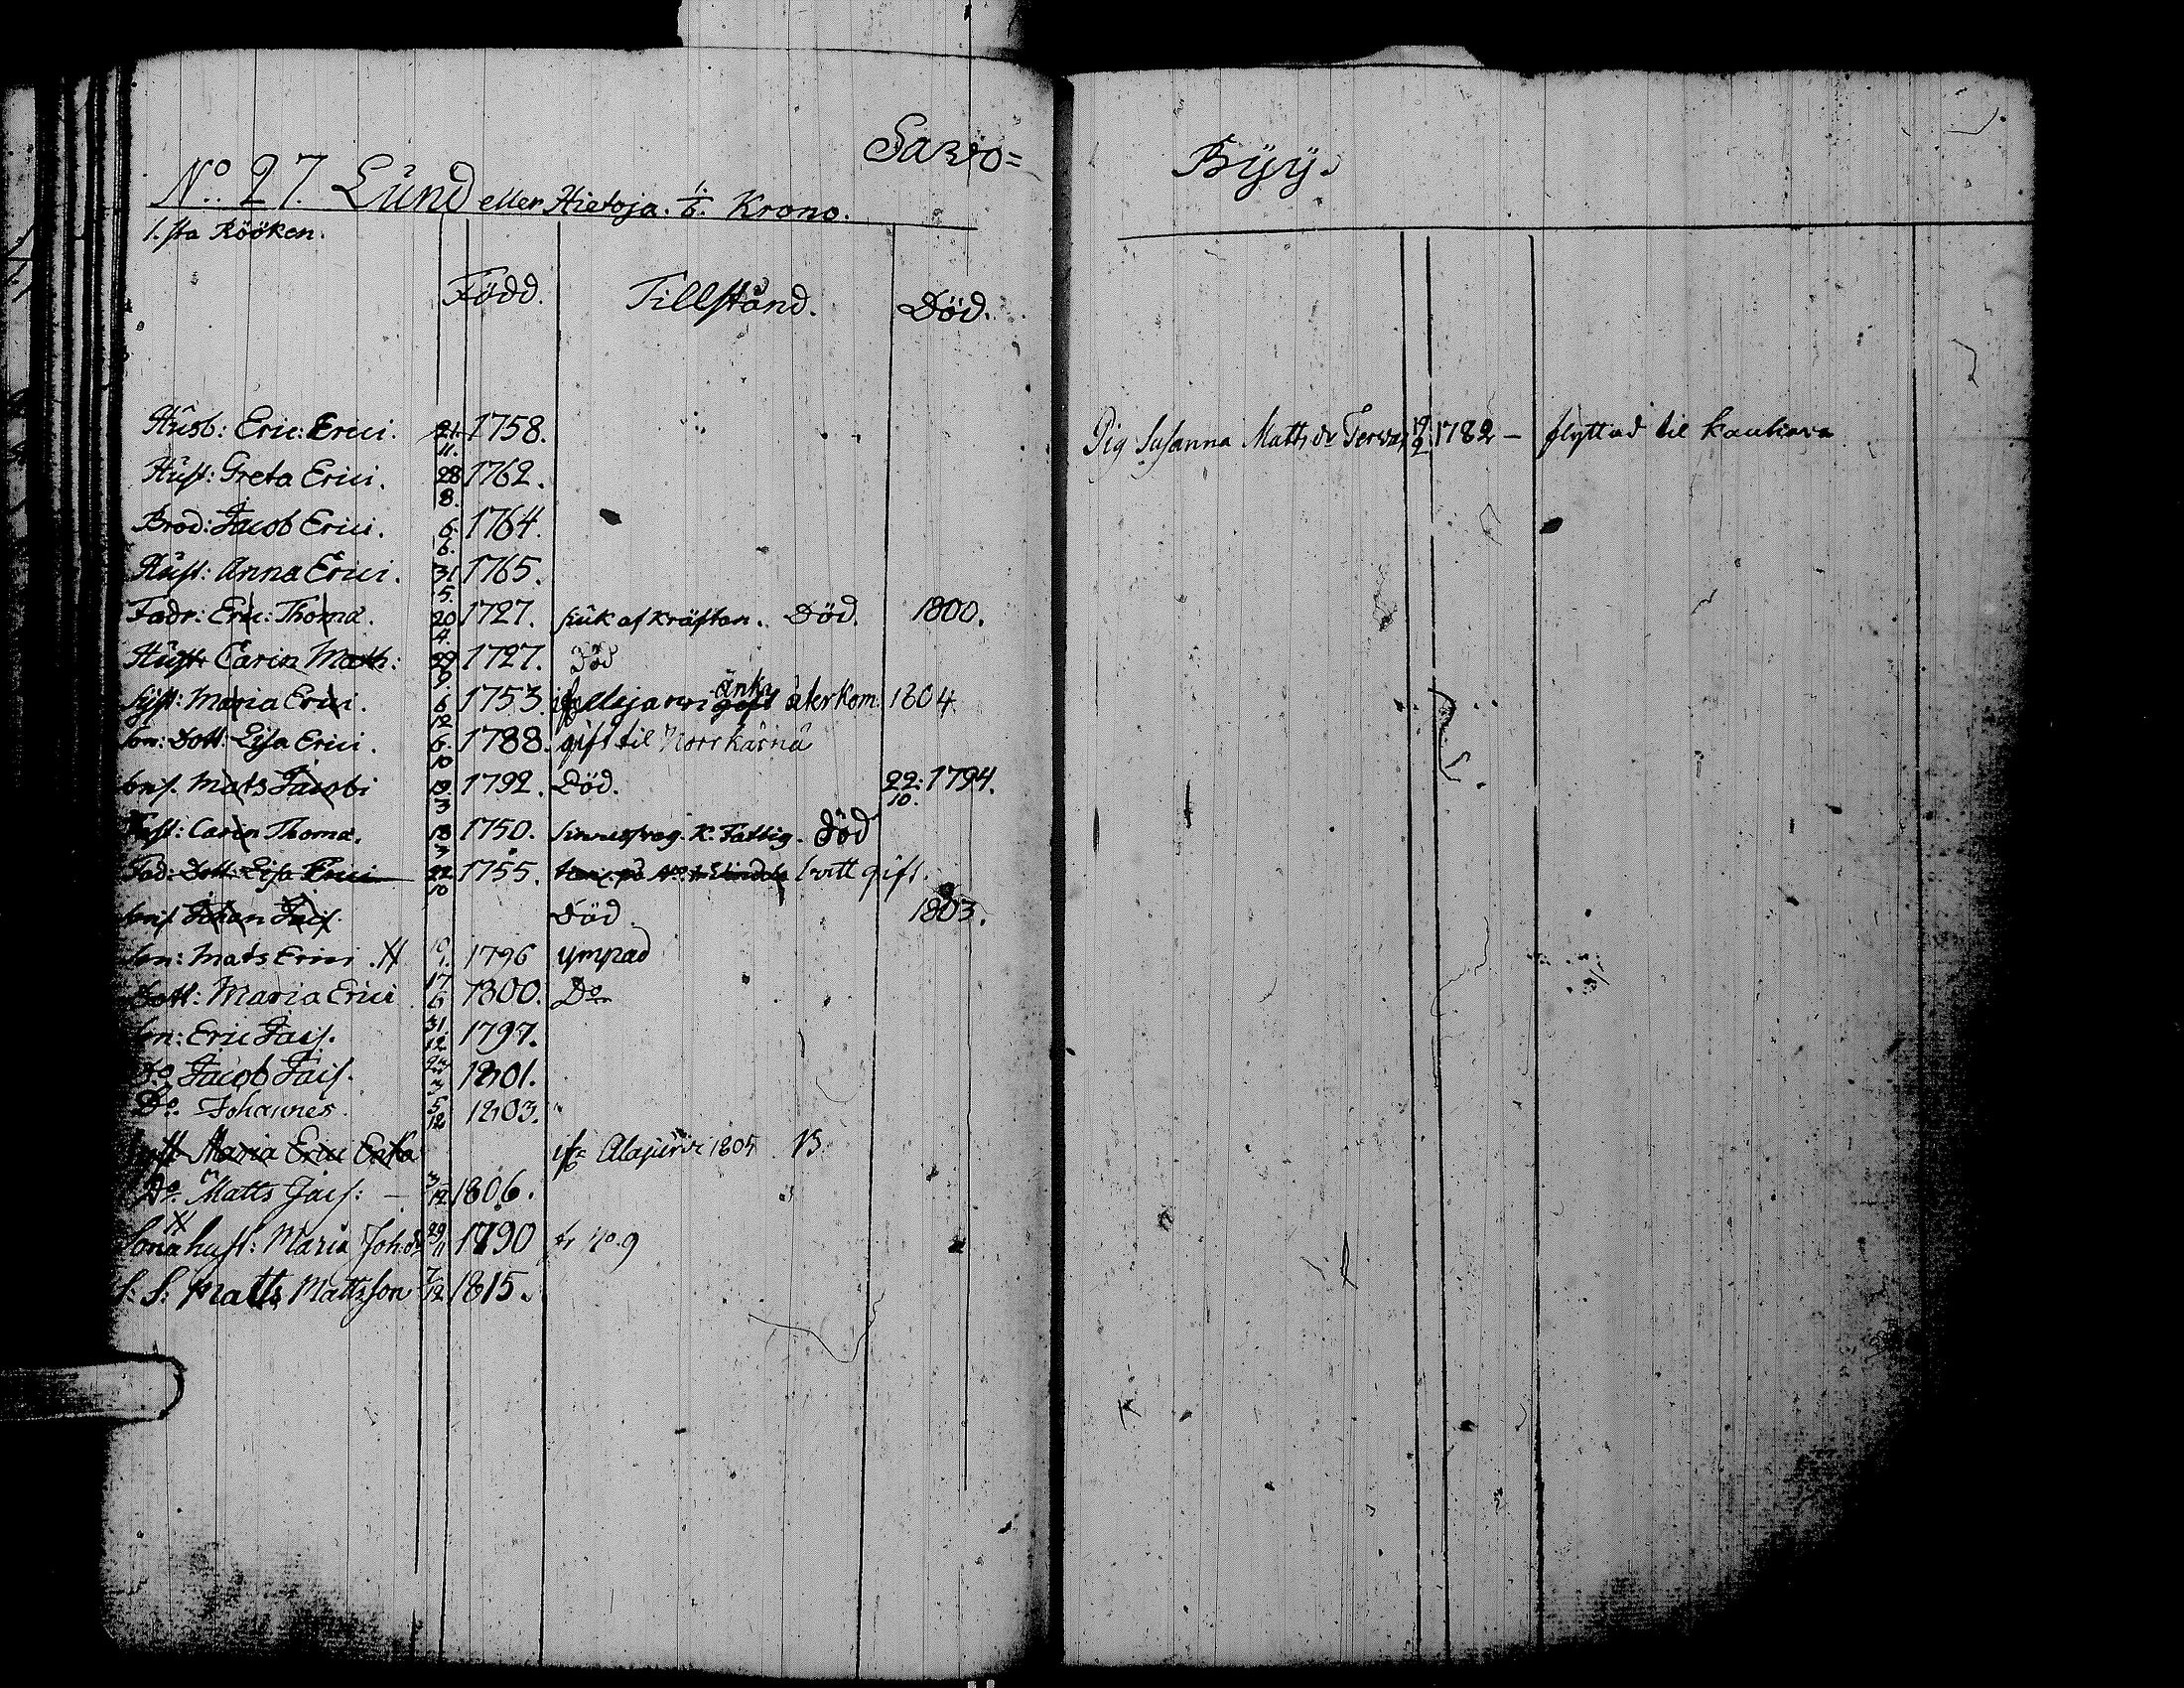 Sawo=
No. 27. Lund eller Hietoja. 1/6. Krono.
1.sta Rööken.
Född. Tillstånd. Död.
Husb: Eric: Erici. 21/11. 1758.
Hust: Greta Erici. 28/8. 1762.
Brod: Jacob Erici. 6/6. 1764.
Hust: Anna Erici. 31/5. 1765.
Fadr: Eric: Thoma. 20/4. 1727. siuk af kräftan. Död. 1800.
Hust: Carin Math: 29/9. 1727. Död
Syst: Maria Erici. 6/12 1753. gift änka återkom 1804
Son: Dott: Lisa Erici. 6/10 1788. gift til Norrkärnä
Mats Jacobi 19/3 1792. Död. 22/10. 1794.
Carin Thoma. 18/3 1750. K. Fattig. Död
Fad: Dott: Lisa Erici 22/10 1755. gift.
Johan Jacs. Död 1803.
Son: Mats Erici 1796 ympad
Dott: Maria Erici 17/6 1800. Do
Son: Eric Jacs. 31/12 1797.
Do Jacob Jacs. 1801.
Do. Johannes. 5/12 1803.
Syst Maria Erici Enka ifr. Alajärvi 1804
Do. Matts Jacs: — 3/12 1806.
Sonahust: Maria Joh.dr 29/11 1790 fr No. 9
S: S: Matts Mattsson 7/12 1815.
Byy.
Pig Susanna Matts dr 19/2 1782 — flyttad til Kauhava